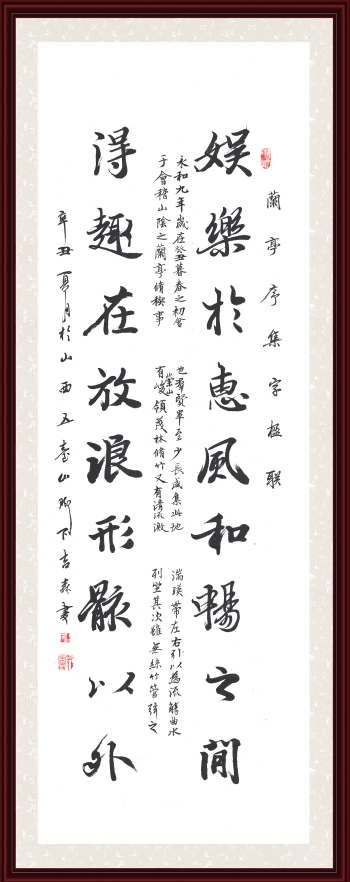 蘭亭序集字楹联
娱樂於惠風和暢之間
永和九年歲在癸丑暮春之初會
于會稽山陰之蘭亭脩稧事
也羣賢畢至少長咸集此地
有崇山峻領茂林脩竹又有清流激
湍暎帶左右引以爲流觴曲水
列坐其次雖無絲竹管弦之
得趣在放浪形骸以外
辛丑夏月於山西五臺山脚下吉森書